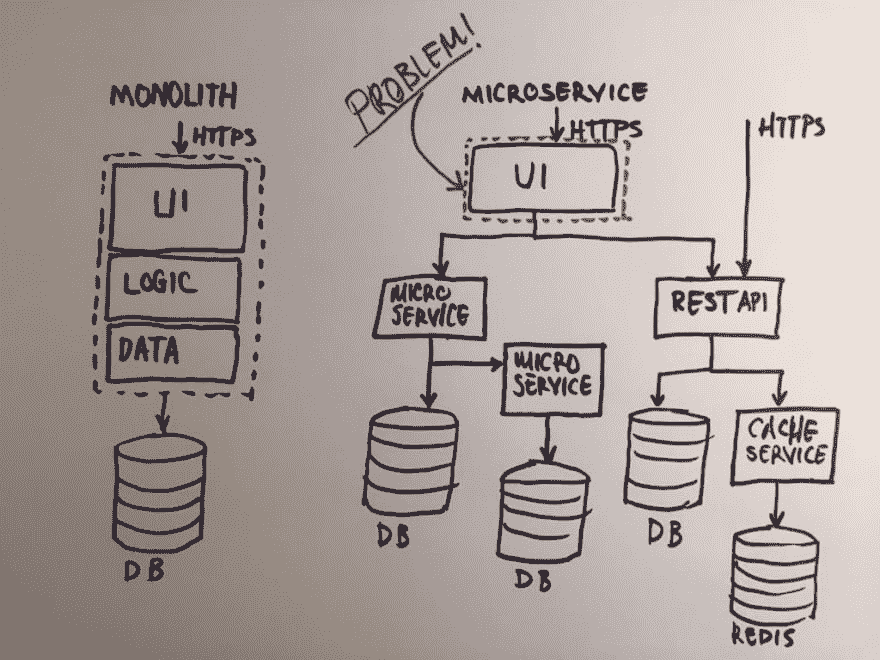 MONOLITH
HTTPS
UI
LOGIC
DATA
DB
PROBLEM!
MICROSERVICE
HTTPS
UI
HTTPS
MICRO
SERVICE
MICRO
SERVICE
DB
DB
REST API
DB
CACHE
SERVICE
REDIS